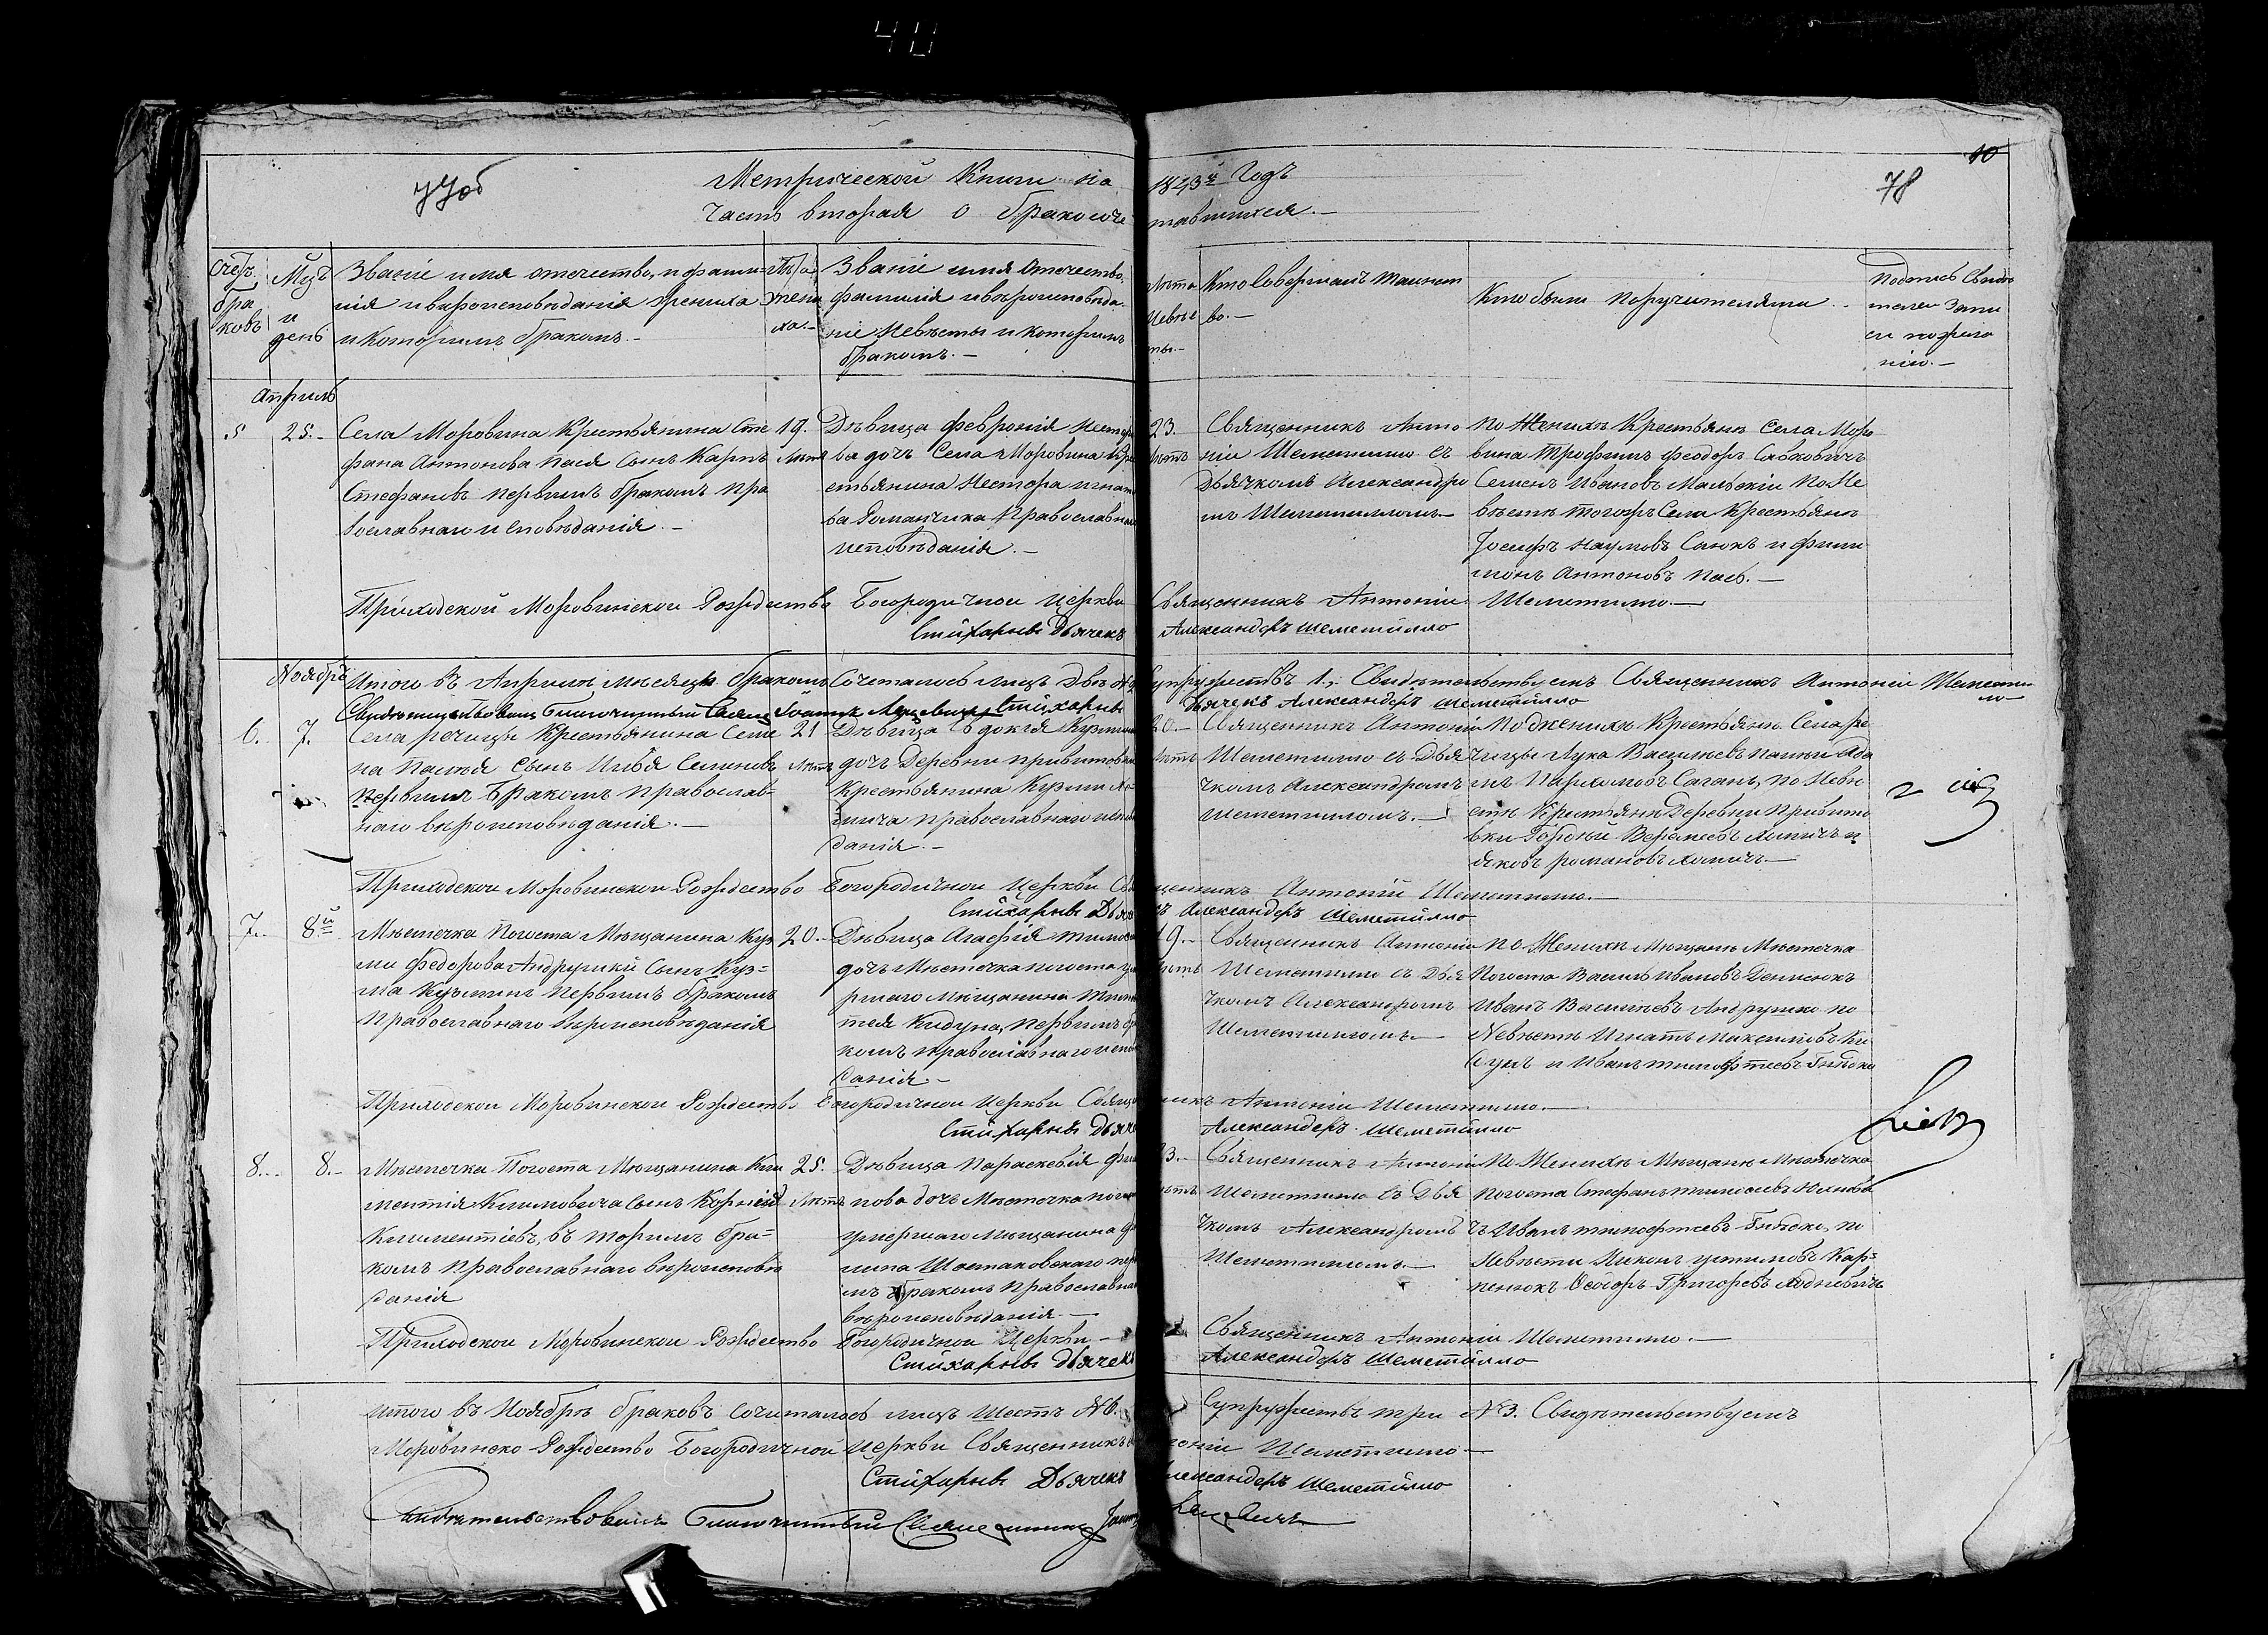 40
77об
Метрической Книги на 1843й Годъ
10
78
Часть вторая о бракосочетавшихся.
Счетъ браковъ
Мцъ и день
Званіе имя отечество, и фамилія и вѣроисповѣданія жениха и которымъ бракомъ.
Лѣта жениха.
Званіе имя отечество, фамилія и вѣроисповѣданіе Невѣсты и которымъ бракомъ.
Лѣта Невѣсты.
Кто Совершалъ Таинство.
Кто были Поручителями
Подпись Свидѣтелей Записи по желанію.
Апрель
5
25.
Села Моровина Крестьянина Сте
фана Антонова Пася Сынъ Карпъ
Стефановъ первымъ бракомъ пра
вославнаго исповѣданія.
19.
Лѣтъ
Дѣвица Феврония Несторо
ва дочь Села Моровина Кре
стьянина Нестора Игнато
ва Романчика Православнаго
исповѣданія.
23.
Лѣтъ
Священникъ Анто
ній Шеметилло съ
Дьячкомъ Александро
мъ Шеметилломъ
По Женихѣ Крестьяне Села Моро
вина Трофимъ Феодоръ Савковичъ
Семенъ Ивановъ Мальскій По Не
вѣстѣ тогожъ Села Крестьяне
Іосифъ Наумовъ Санюкъ и Фили
монъ Антоновъ Пась.
Приходской Моровинской Рождество Богородичной Церкви Священникъ Антоній Шеметилло
Стихарный Дьячекъ Александеръ Шеметилло
Ноябрь
Итого въ Апрелѣ мѣсяцѣ бракомъ Сочеталось лицъ Двѣ Супружествъ 1. Свидѣтельствуемъ Священникъ Антоній Шеметилло
Свидѣтельствовалъ Благочинный Іоаннъ Стихарный Дьячекъ Александеръ Шеметилло
6.
7.
Села речицы Крестьянина Семе
на сынъ Илья Семеновъ
первымъ Бракомъ православ
наго вѣроисповѣданія.
21
Лѣтъ
Дѣвица Евдокія Кузмина
дочь Деревни Привитовки
Крестьянина Кузмы Хо
мича православнаго испо
данія.
20.
Лѣтъ
Священникъ Антоній
Шеметилло съ Дья
чкомъ Александромъ
Шеметилломъ.
По Женихѣ Крестьяне Села Ре
чицы Лука Васильевъ Ада
мъ Парихмовъ Саганъ, по Невѣ
стѣ Крестьяне Деревни Привито
вки Хомичъ и
Яковъ романовъ Хомичъ.
Приходской Моровинской Рождество Богородичной Церкви Священникъ Антоній Шеметилло.
Стихарный Дьячекъ Александеръ Шеметилло
7.
8й
Мѣстечка Погоста Мѣщанина Куз
мы Федорова Андрушки Сынъ Куз=
ма Кузминъ Первымъ бракомъ
Православнаго Вѣроисповѣданія
20.
Дѣвица Агафія Тимоф
дочь Мѣстечка погоста у
ршаго Мѣщанина Тимо
тея Кидуна, Первымъ бра
комъ православнаго испо
данія
19.
Лѣтъ
Священникъ Антоній
Шеметилло съ Дья
чкомъ Александромъ
Шеметилломъ
По Женихѣ Мѣщане Мѣстечка
Погоста Василь Ивановъ Денисюкъ
Иванъ Васильевъ Андрушко по
Невѣстѣ Игнатъ Максимовъ Ки
дунъ и Иванъ Тимофтеевъ
Приходской Моровинской Рождество Богородичной Церкви Священникъ Антоній Шеметилло.
Стихарный Дьячекъ Александеръ Шеметилло
8.
8.
Мѣстечка Погоста Мѣщанина Кли
ментія Климовича Сынъ Корнилій
Климентіевъ, въ торимъ бра=
комъ Православнаго вѣроисповѣ
данія
25.
Лѣтъ
Дѣвица Параскевія Фили
пова дочь Мѣстечка погоста
умершаго Мѣщанина Фи
липа Шостаковскаго пер
мъ бракомъ Православнаго
вѣроисповѣданія.
23.
Лѣтъ
Священникъ Антоній
Шеметилло съ Дья
чкомъ Александромъ
Шеметилломъ
По Женихѣ Мѣщане Мѣстечка
Погоста Стефанъ
Иванъ Тимофтеевъ по
Невѣсти Никонъ Кар=
пенюкъ Феодоръ Григоревъ
Приходской Моровинской Рождество Богородичной Церкви Священникъ Антоній Шеметилло.
Стихарный Дьячекъ Александеръ Шеметилло
Итого въ Ноябрѣ браковъ Сочеталось лицъ Шесть №6. Супружествъ три №3. Свидѣтельствуемъ
Моровинско Рождество Богородичной Церкви Священникъ Антоній Шеметилло
Стихарный Дьячекъ Александеръ Шеметилло
Свидѣтельствовалъ Благочинный Священникъ Іоаннъ